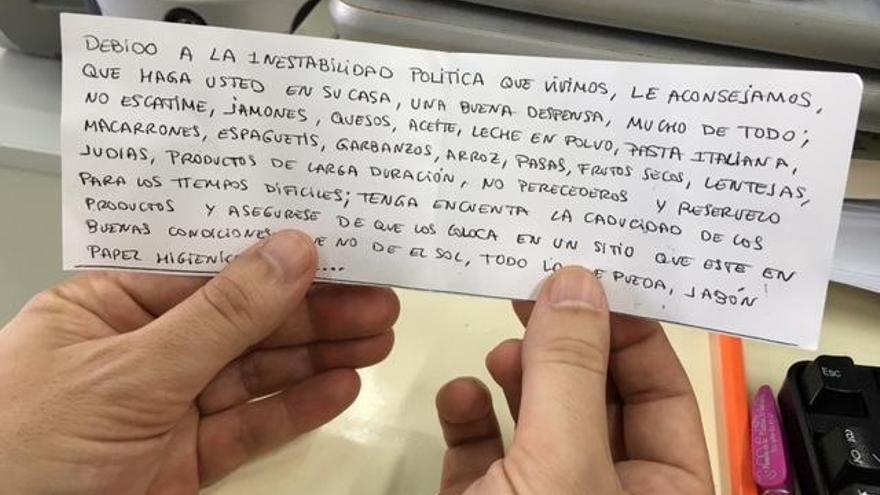 DEBIDO A LA INESTABILIDAD POLÍTICA QUE VIVIMOS, LE ACONSEJAMOS,
QUE HAGA USTED EN SU CASA, UNA BUENA DESPENSA, MUCHO DE TODO;
NO ESCATIME, JAMONES, QUESOS, ACEITE, LECHE EN POLVO, PASTA ITALIANA,
MACARRONES, ESPAGUETIS, GARBANZOS, ARROZ, PASAS, FRUTOS SECOS, LENTEJAS,
JUDIAS, PRODUCTOS DE LARGA DURACIÓN, NO PERECEDEROS Y RESERVELO
PARA LOS TIEMPOS DIFICILES; TENGA ENCUENTA LA CADUCIDAD DE LOS
PRODUCTOS Y ASEGURESE DE QUE LOS COLOCA EN UN SITIO QUE ESTE EN
BUENAS CONDICIONES NO DE EL SOL, TODO PUEDA, JABÓN
PAPEL HIGIENICO ....
Esc